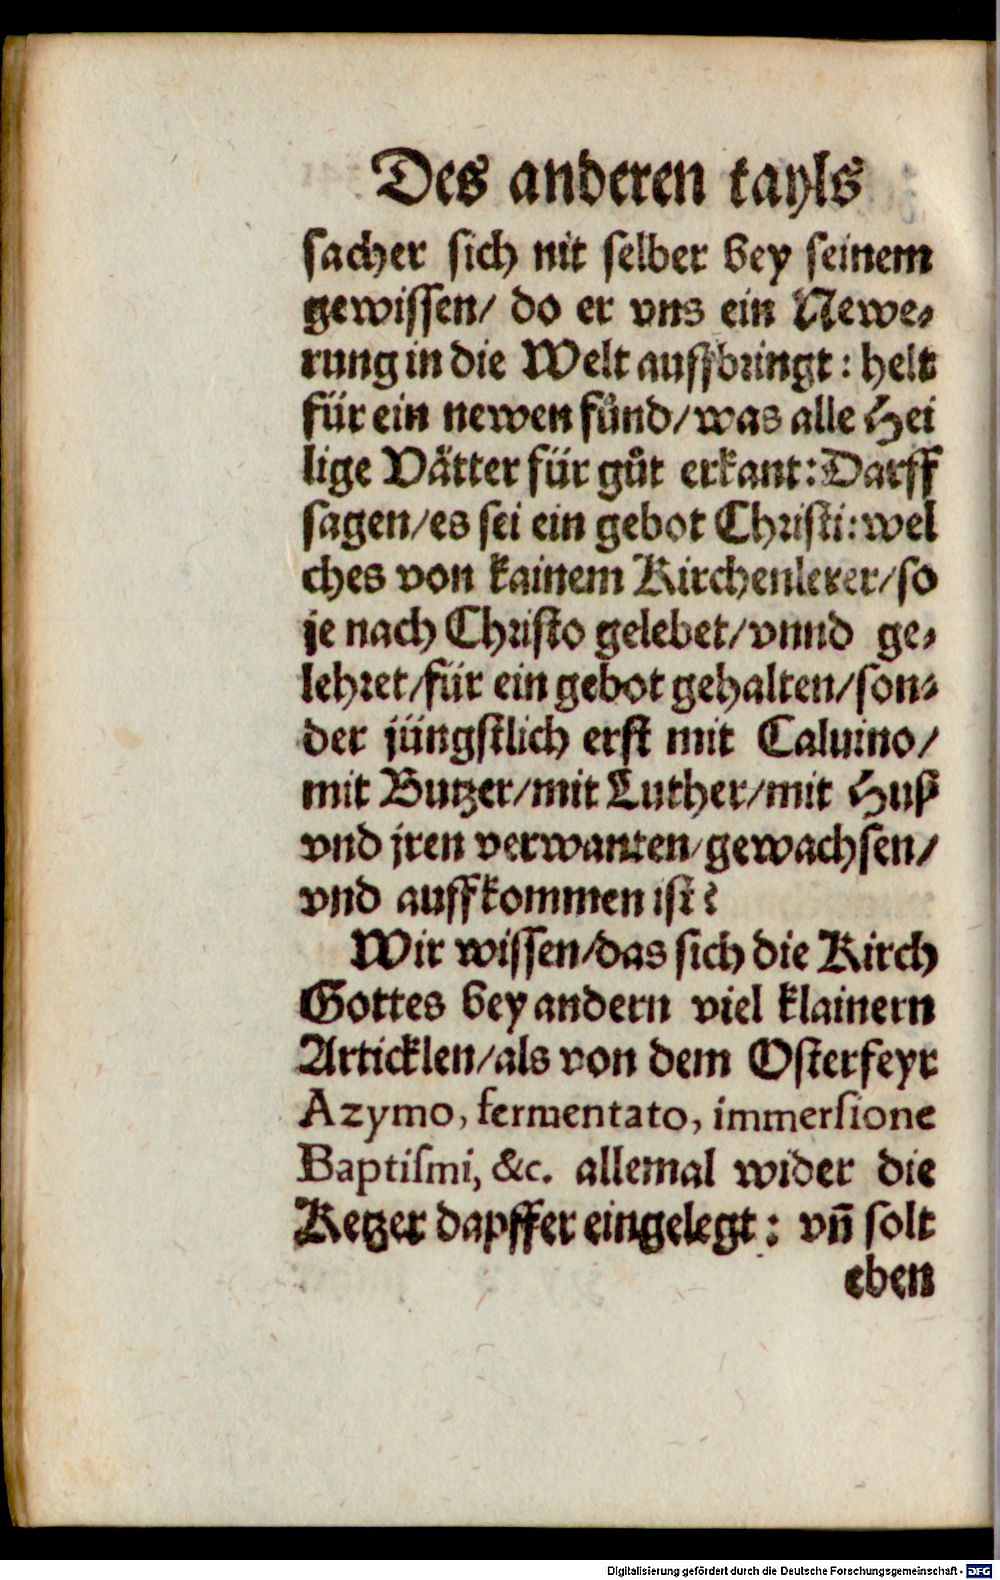 Des anderen tayls
sacher sich nit selber bey seinem
gewissen/ do er vns ein Newe⸗
rung in die Welt auffbringt: helt
für ein newen fůnd/was alle Hei
lige Vätter für gůt erkant: Darff
sagen/es sei ein gebot Christi: wel
ches von kainem Kirchenlerer/so
je nach Christo gelebet/vnnd ge⸗
lehret/für ein gebot gehalten/son⸗
der jüngstlich erst mit Caluino/
mit Butzer/mit Luther/mit Huß
vnd jren verwanten/gewachsen/
vnd auffkommen ist?
Wir wissen/das sich die Kirch
Gottes bey andern viel klainern
Articklen/als von dem Osterfeyr
Azymo, fermentato, immersione
Baptismi, &c. allemal wider die
Ketzer dapffer eingelegt: vñ solt
eben
Digitalisierung gefördert durch die Deutsche Forschungsgemeinschaft - DFG